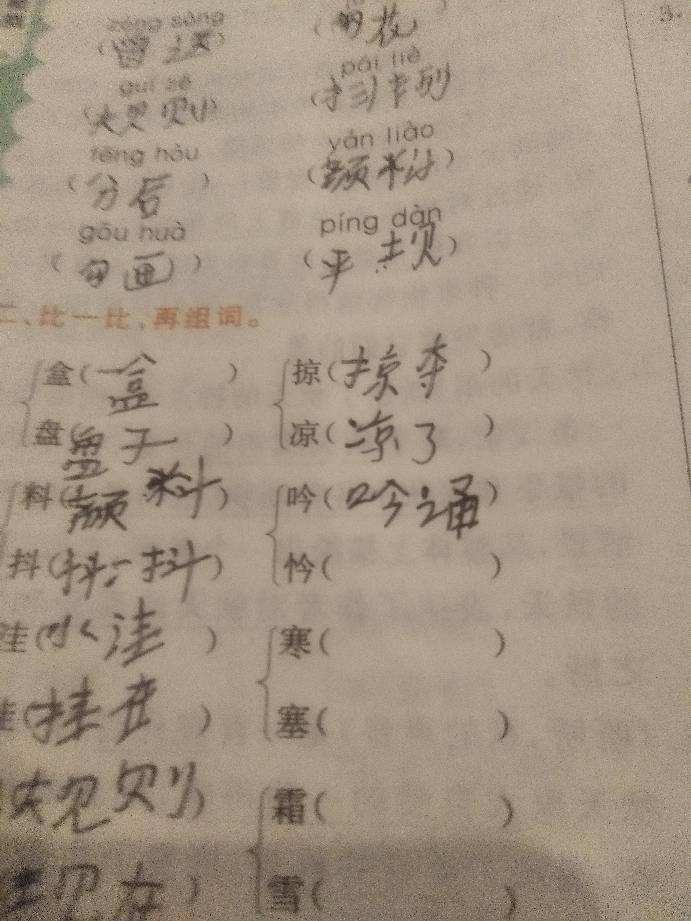 zèng sòng
(曾送) ( 花)
guī zé pái liè
(规则) (排列)
fēng hòu yán liào
(分后) (颜料)
gōu huà píng dàn
(勾画) (平坝)
二、比一比,再组词。
盒(一盒) 掠(掠夺)
盘(盘子) 凉(凉了)
料(颜料) 吟(吟诵)
抖(抖一抖) 怜( )
洼(水洼) 寒( )
挂(挂在) 塞( )
规则) 霜(
现在) 雪(